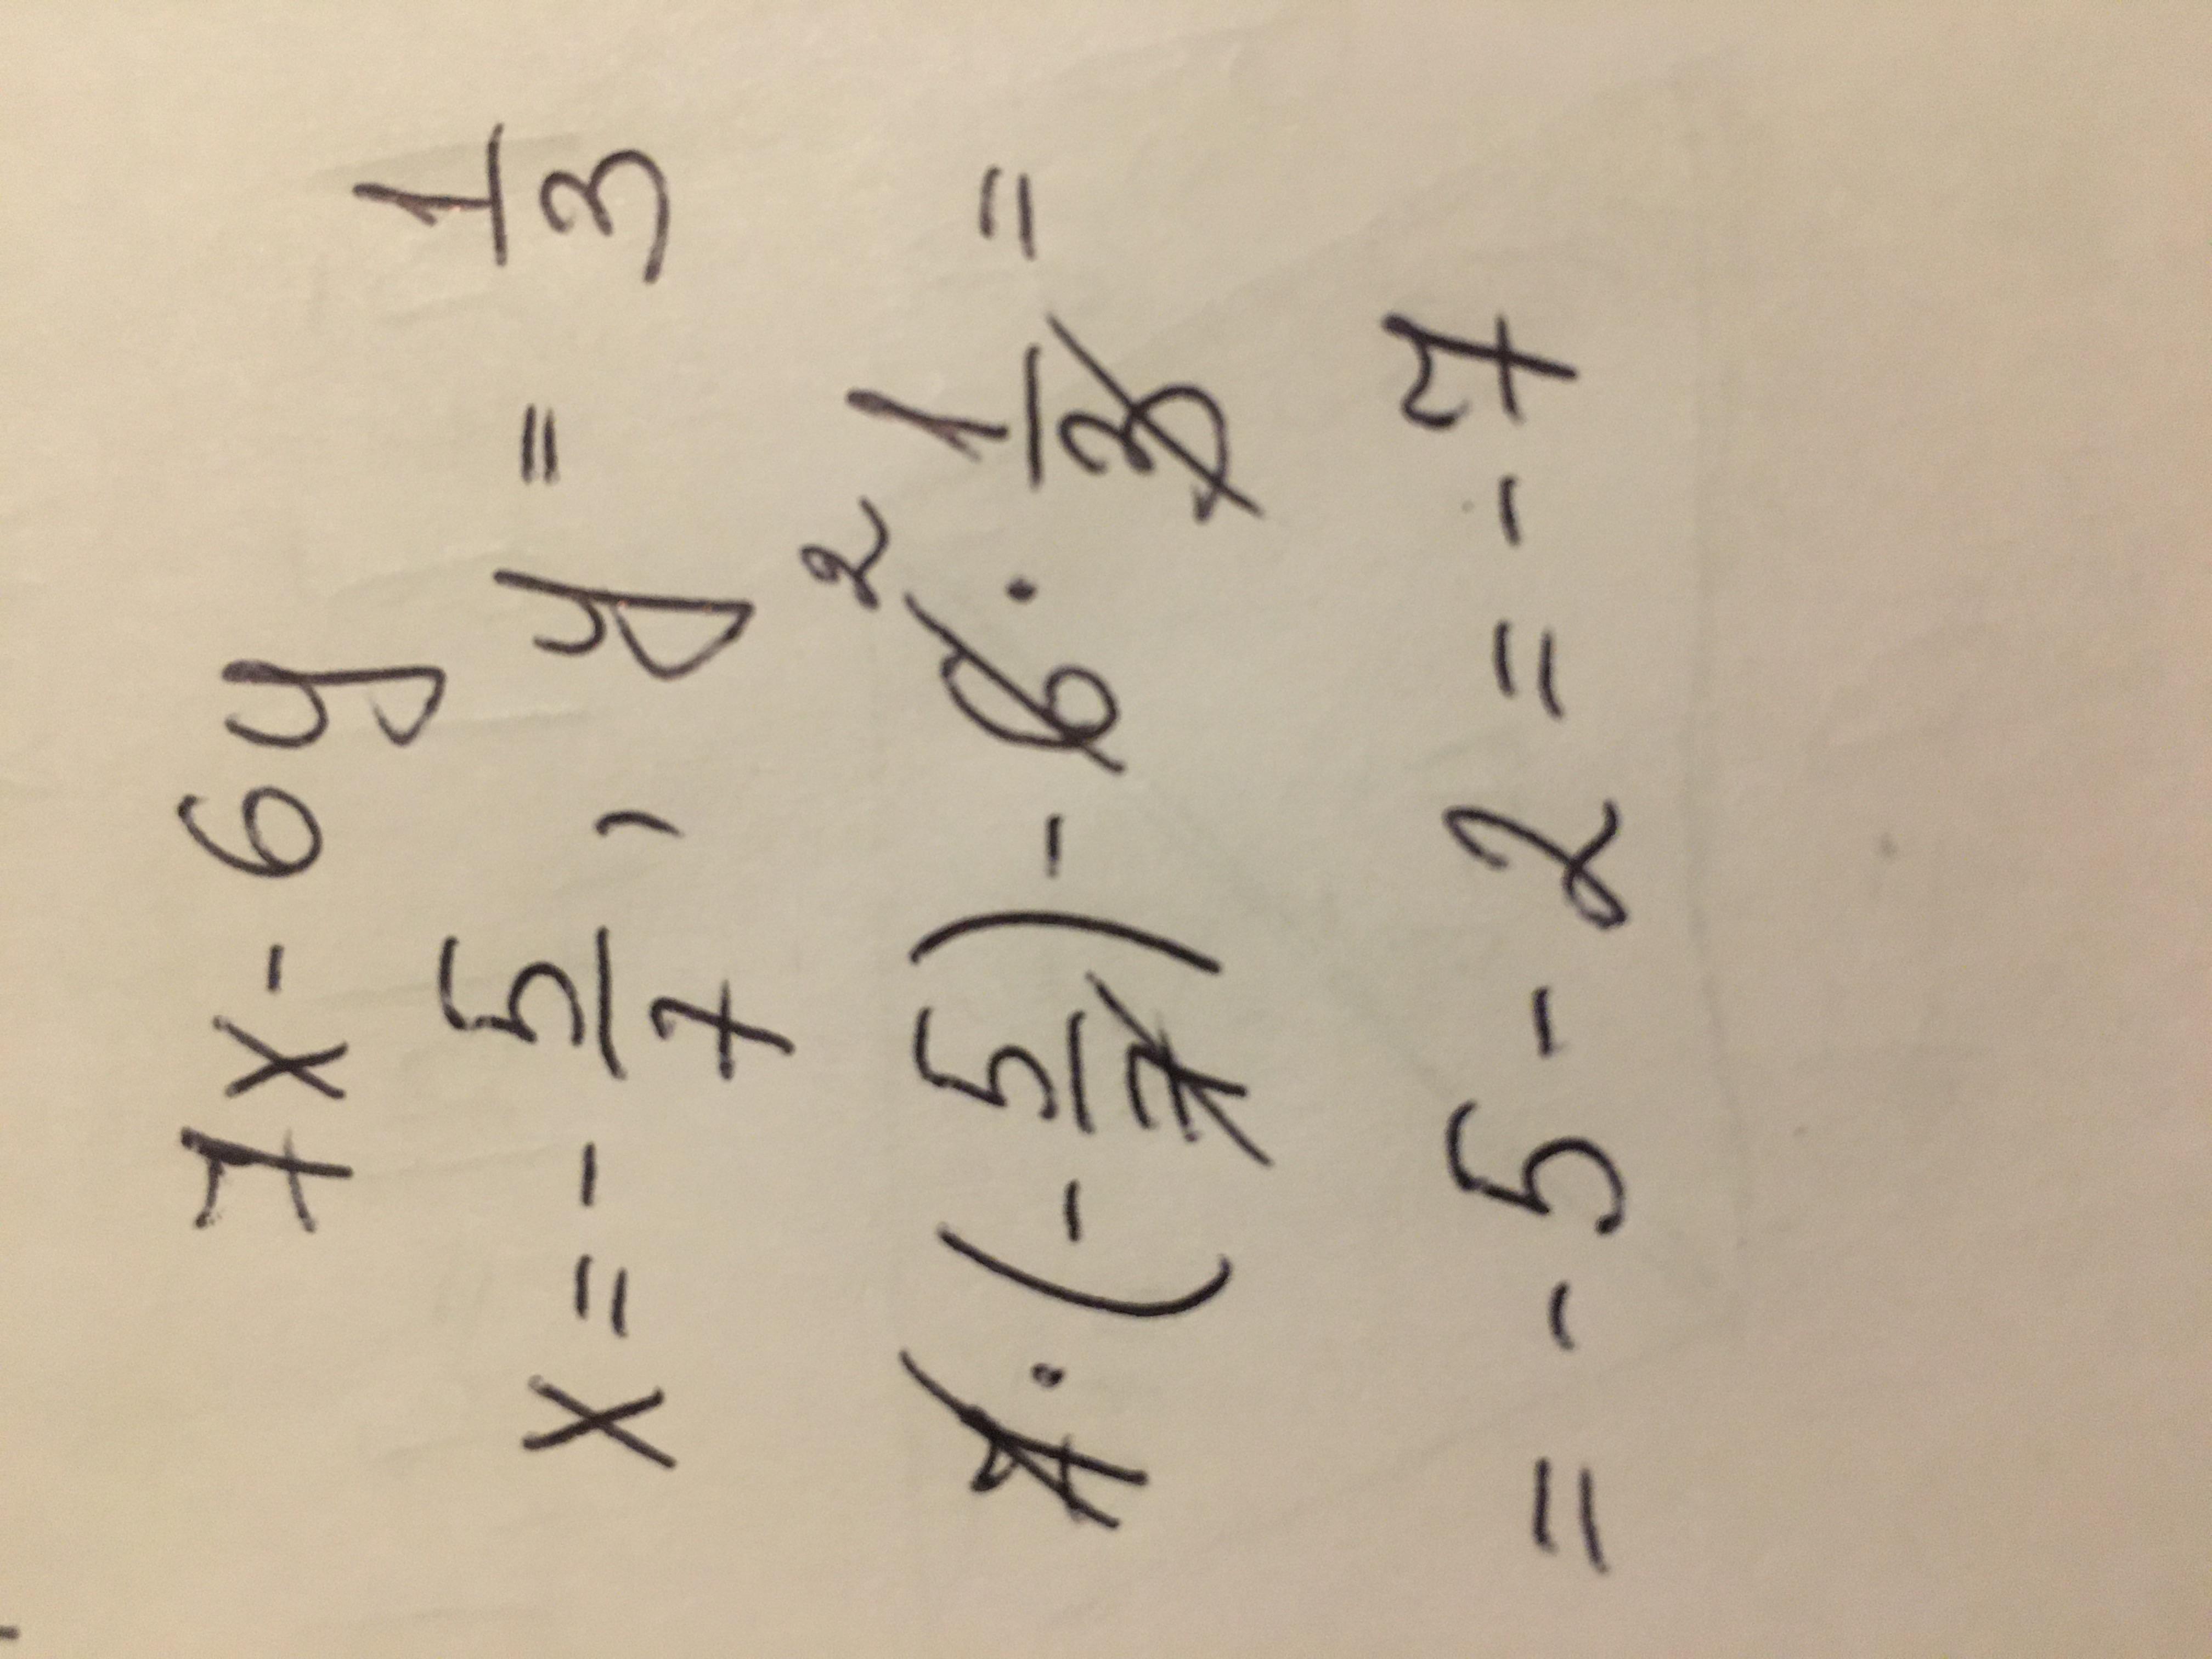 7x - 6y
x = - 5/7, y = 1/3
7 · (- 5/7) - 6 · 1/3 = 2
= - 5 - 2 = - 7